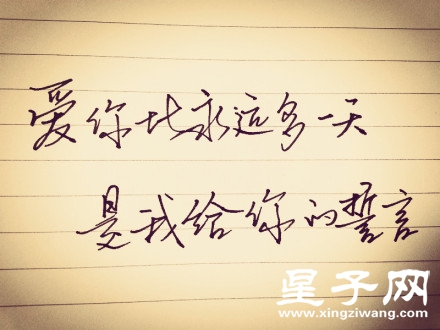 爱你比永远多一天
是我给你的誓言
星子网
www.xingziwang.com